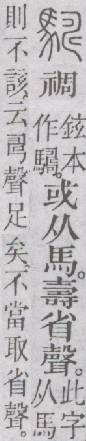 禂
鉉本
作
或从馬。壽省聲。
此字
从馬
則不該云𠷎聲足矣。不當取省聲。